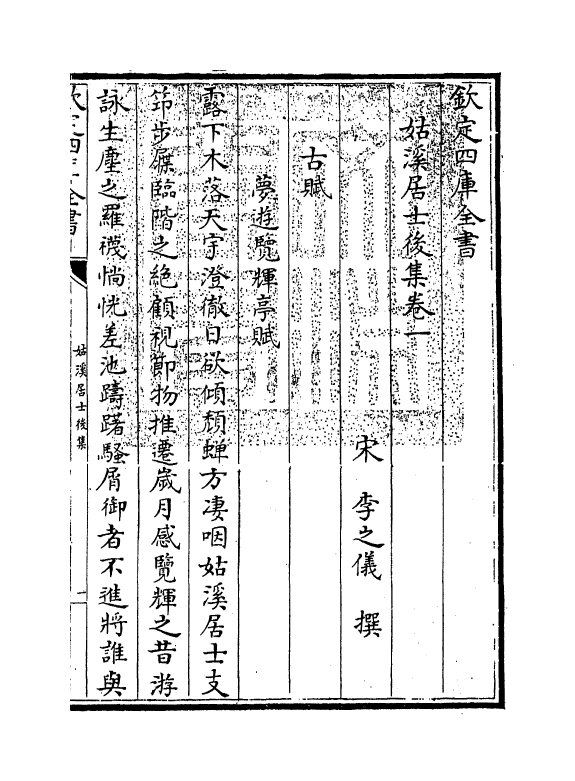 欽定四庫全書
姑溪居士後集卷一
宋 李之儀 撰
古賦
夢遊覽輝亭賦
露下木落天宇澄徹日欲傾頹蟬方凄咽姑溪居士支
笻步屧臨階之絶顧視節物推遷歲月感覽輝之昔游
詠生塵之羅襪惝恍差池躊躇騷屑御者不進將誰與
欽定四庫全書
姑溪居士後集